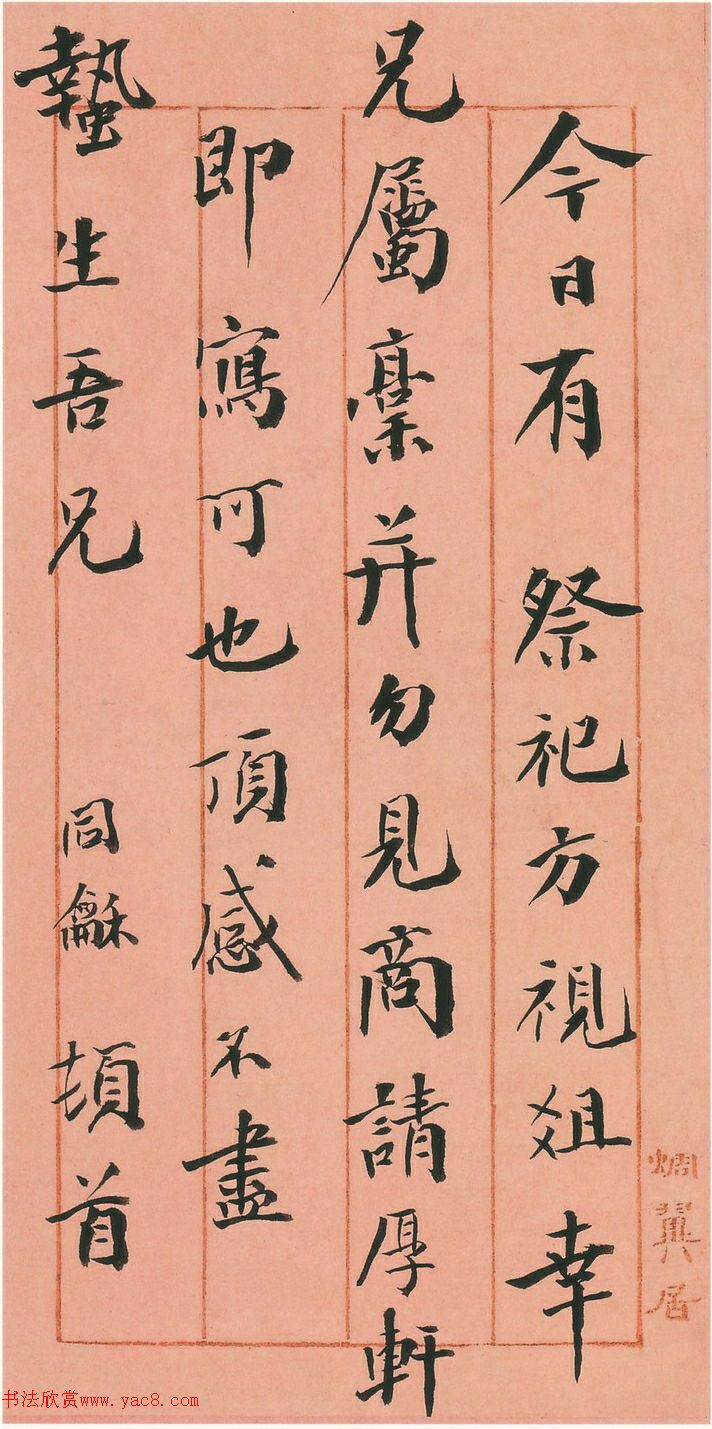 今日有 祭祀方視俎幸
兄屬稾并勿見商請厚軒
即寫可也頂感不盡
蟄生吾兄 同龢 頓首
翼居
书法欣赏www.yac8.com